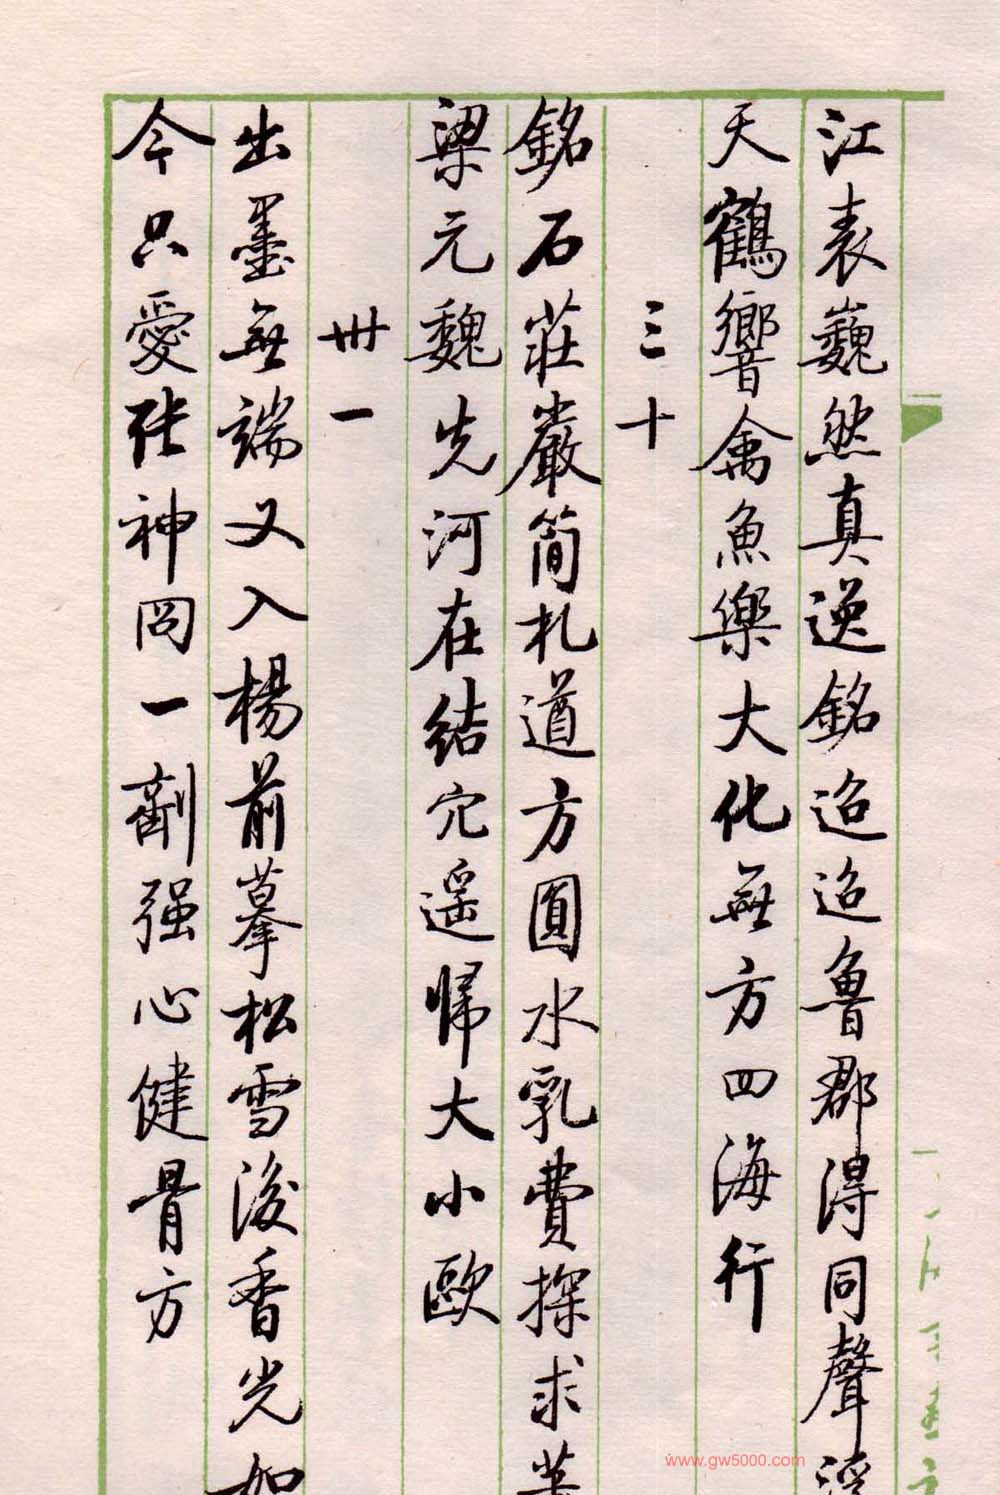 江表巍然真逸銘迢迢魯郡得同聲
天鶴響禽魚樂大化無方四海行
三十
銘石莊嚴簡札遒方圓水乳費探求
梁元魏先河在結穴遥歸大小歐
卅一
出墨無端又入楊前摹松雪後香光如
今只愛張神冏一劑强心健骨方
www.gw5000.com